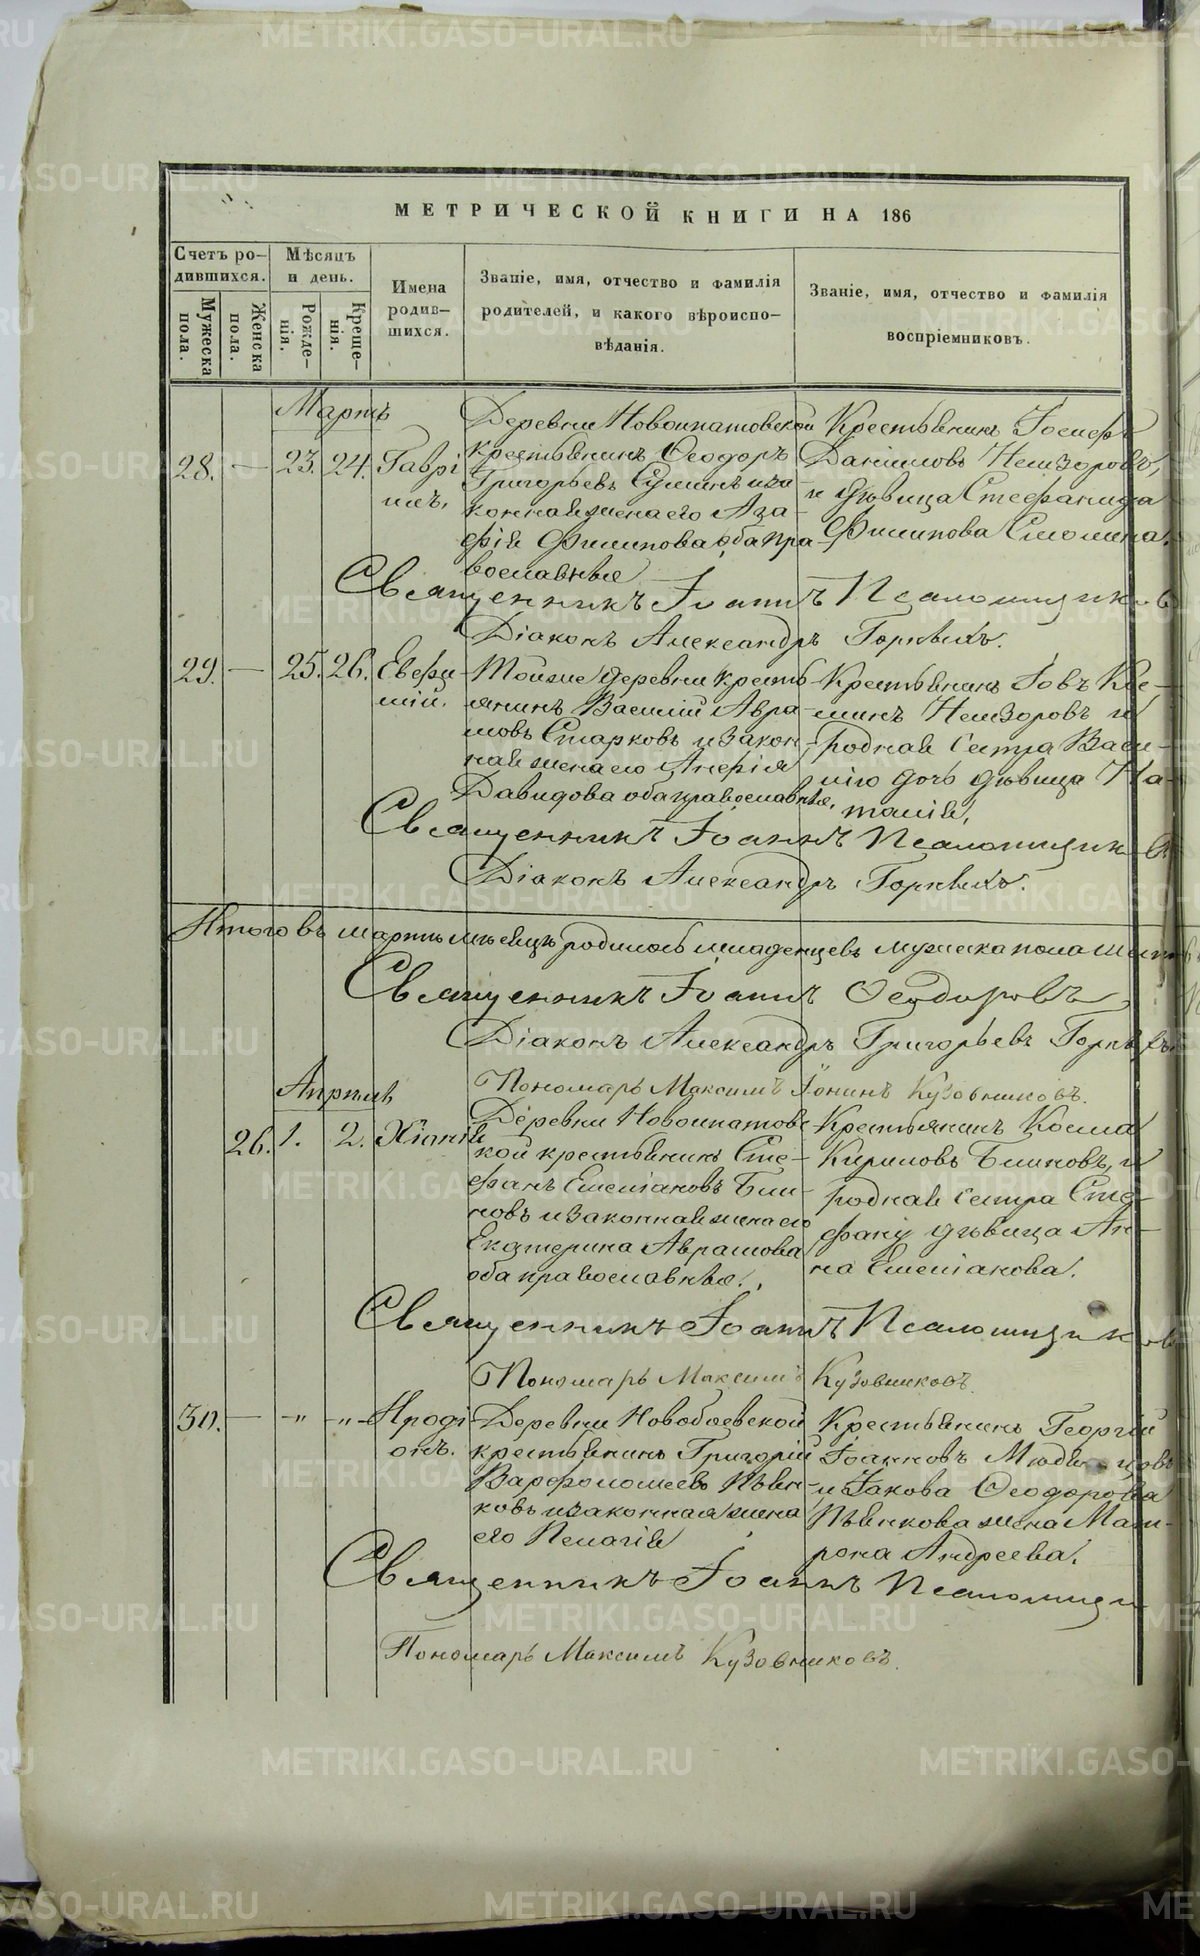 МЕТРИЧЕСКОЙ КНИГИ НА 186
Счетъ ро-
дившихся.
Мѣсяцъ
и день.
Имена
родив-
шихся.
Званіе, имя, отчество и фамилія
родителей, и какого вѣроиспо-
вѣданія.
Званіе, имя, отчество и фамилія
воспріемниковъ.
Мужеска
пола.
Женска
пола.
Рожде-
нія.
Креще-
нія.
Мартъ
28. — 23. 24. Гаврі
илъ.
Деревни Новоипатовской
крестьянинъ Ѳеодоръ
Григорьевъ и за
конная жена его Ага-
фія Филипова, оба пра-
вославные
Крестьянинъ Іосифъ
Даніиловъ
и дѣвица Стефанида
Филипова
Священникъ Іоаннъ Псаломщиковъ
Діаконъ Александръ Горныхъ.
29. — 25. 26. Евфи-
мій.
Тойже деревни кресть
янинъ Василій Авра-
мовъ Старковъ и закон-
ная жена его
Давидова оба православные,
Крестьянинъ Іовъ Кос-
минъ и
родная сестра Васи-
лію дочь дѣвица На-
талія,
Священникъ Іоаннъ Псаломщиковъ
Діаконъ Александръ Горныхъ.
Итого въ мартѣ мѣсяцѣ родилось младенцевъ мужеска пола
Священникъ Іоаннъ Ѳеодоровъ
Діаконъ Александръ Григорьевъ Горныхъ
Пономарь Максимъ Іонинъ Кузовниковъ.
Апрѣль
26. 1. 2. Хіонія
Деревни Новоипатовс-
кой крестьянинъ Сте-
фанъ Емеліановъ Бли-
новъ и законная жена его
Екатерина Аврамова
оба православные.
Крестьянинъ Косма
Кириловъ Блиновъ, и
родная сестра Сте-
фану дѣвица Ан-
на Емеліанова.
Священникъ Іоаннъ Псаломщиковъ
Пономарь Максимъ Кузовниковъ.
30. — -"- -"- Иродi
онъ.
Деревни Новобаевской
крестьянинъ Григорій
Варѳоломеевъ Пьян-
ковъ и законная жена
его Пелагія
Крестьянинъ Георгій
Іоанновъ
и Іакова Ѳеодорова
Пьянкова жена Мат-
рона Андреева.
Священникъ Іоаннъ Псаломщи
Пономарь Максимъ Кузовниковъ.
METRIKI.GASO-URAL.RU